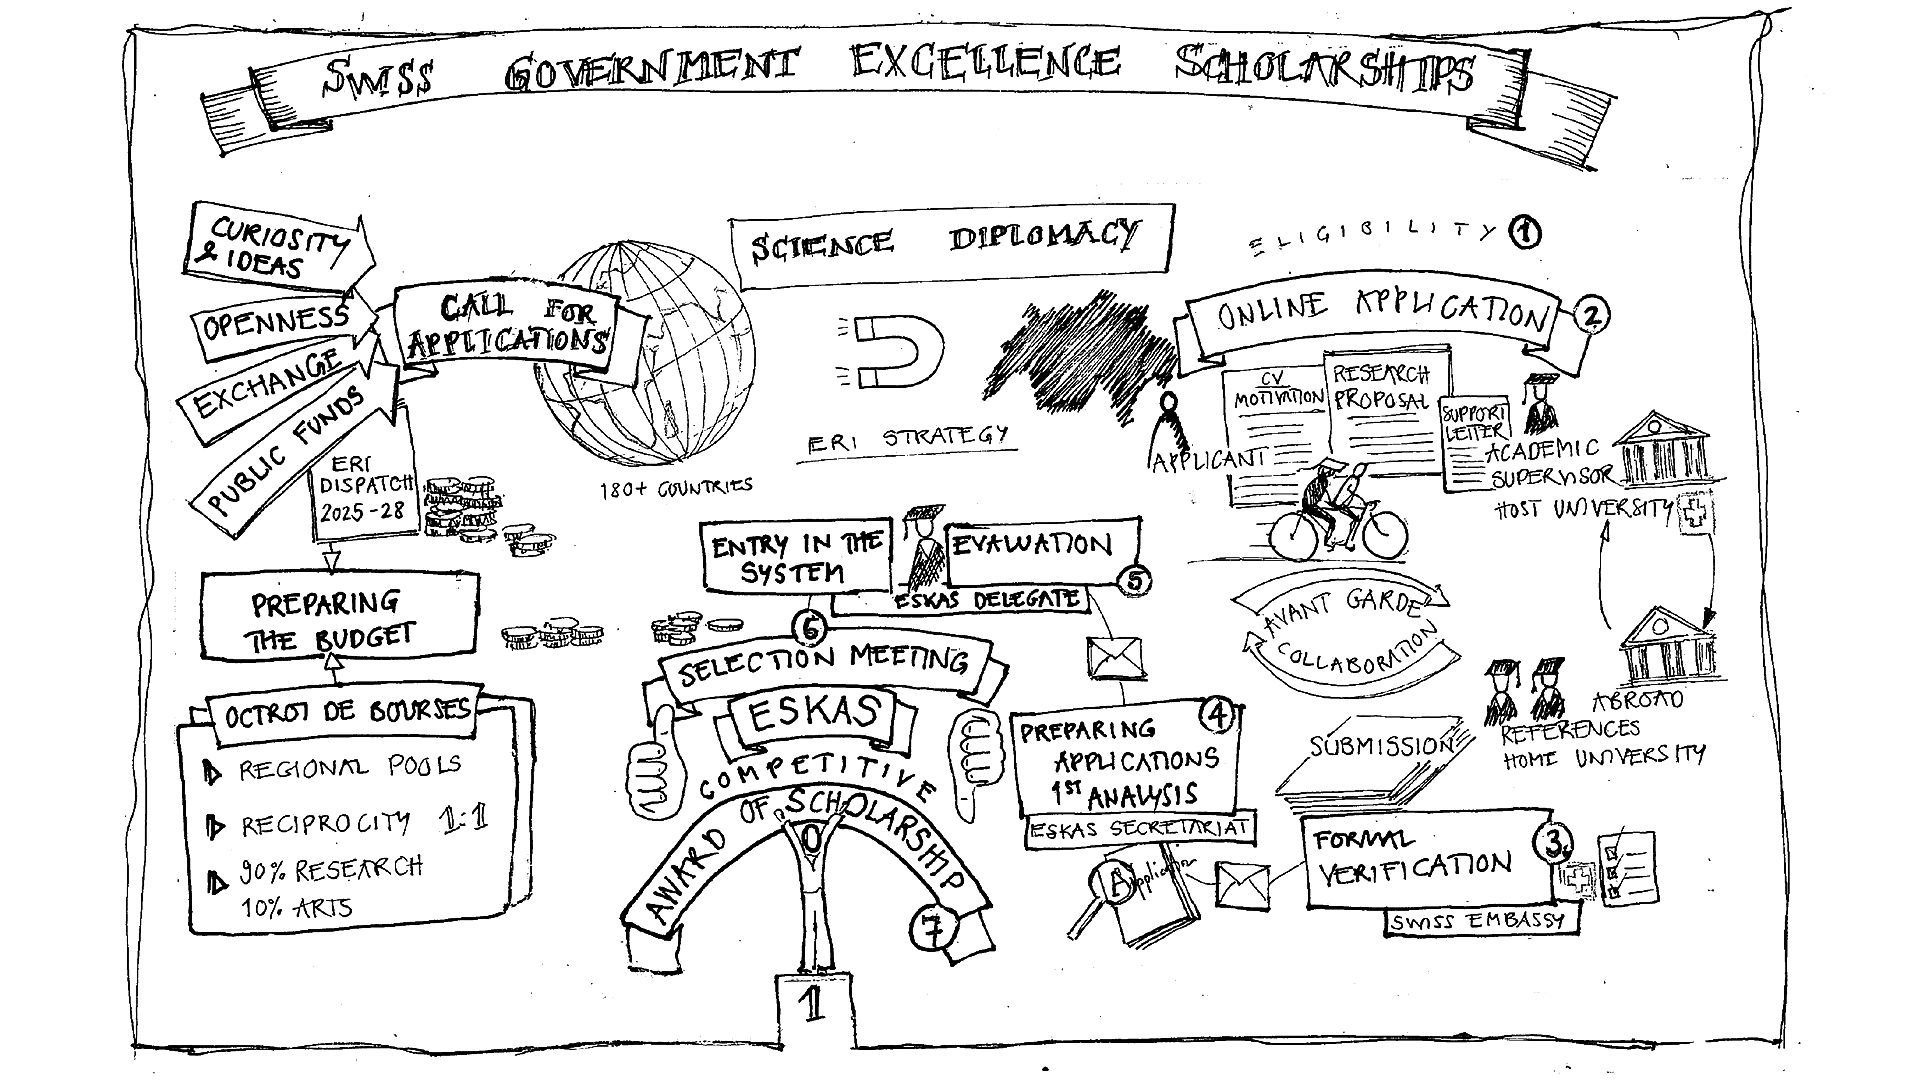 SWISS GOVERNMENT EXCELLENCE SCHOLARSHIPS
CURIOSITY
& IDEAS
OPENNESS
EXCHANGE
PUBLIC FUNDS
CALL FOR
APPLICATIONS
180+ COUNTRIES
SCIENCE DIPLOMACY
ERI STRATEGY
ERI
DISPATCH
2025-28
PREPARING
THE BUDGET
OCTROI DE BOURSES
REGIONAL POOLS
RECIPROCITY 1:1
90% RESEARCH
10% ARTS
ELIGIBILITY 1
ONLINE APPLICATION 2
CV
MOTIVATION
RESEARCH
PROPOSAL
SUPPORT
LETTER
APPLICANT
ACADEMIC
SUPERVISOR
HOST UNIVERSITY
AVANT GARDE
COLLABORATION
ABROAD
REFERENCES
HOME UNIVERSITY
SUBMISSION
FORMAL
VERIFICATION
3.
SWISS EMBASSY
4
PREPARING
APPLICATIONS
1ST ANALYSIS
ESKAS SECRETARIAT
Application
EVALUATION
5
ESKAS DELEGATE
ENTRY IN THE
SYSTEM
6
SELECTION MEETING
ESKAS
COMPETITIVE
AWARD OF SCHOLARSHIP
7
1